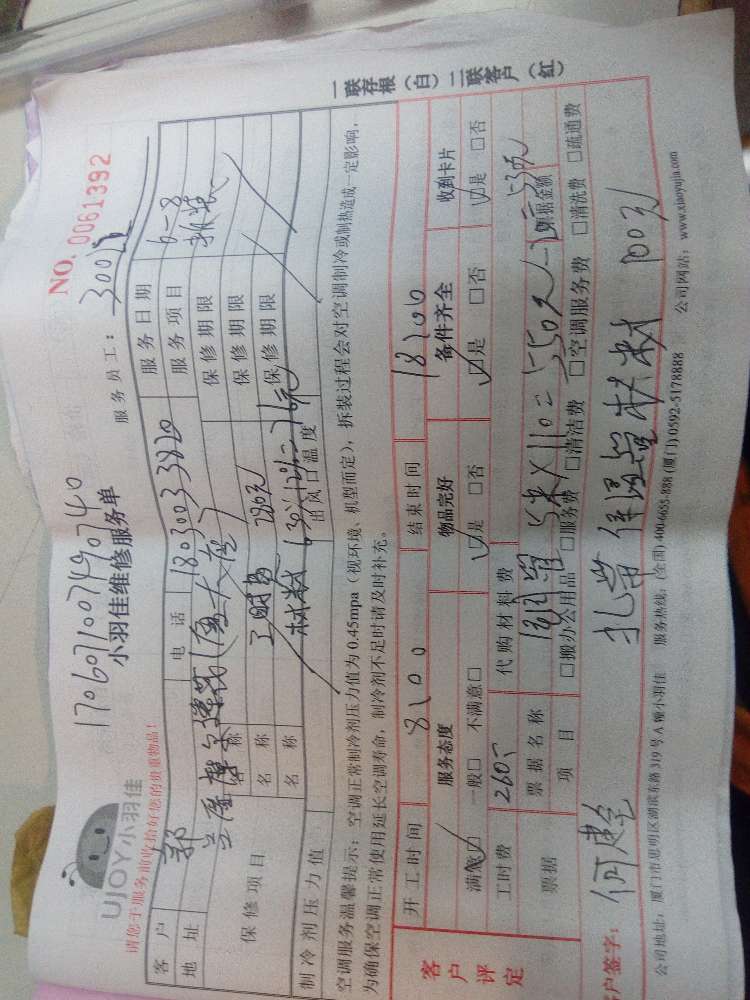 一联存根（白）二联客户（红）
NO. 0061392
1706071007490740
小羽佳维修服务单
UJOY小羽佳
服务员工：
请您于服务前收拾好您的贵重物品！
客户 郭 电话 18030033820 服务日期 6-8
地址 服务项目
保修项目 名称 工时费 260元 保修期限
名称 材料 保修期限
名称 保修期限
制冷剂压力值 出风口温度
空调服务温馨提示：空调正常制冷剂压力值为0.45mpa（视环境、机型而定），拆装过程会对空调制冷或制热造成一定影响，
为确保空调正常使用延长空调寿命，制冷剂不足时请及时补充。
客户评定
开工时间 8:00 结束时间 18:00
服务态度 物品完好 备件齐全 收到卡片
满意□ 一般□ 不满意□ □是 □否 □是 □否 □是 □否
工时费 260- 代购材料费 铜管 5米×110=550元
票据 票据名称 □搬办公用品 □服务费 □清洁费 □空调服务费 □清洗费 □疏通费
项目 票据金额
客户签字： 何建 扎带 保温管 材料 100元
公司地址：厦门市思明区湖滨东路319号A幢小羽佳 服务热线：(全国)400-6655-888 (厦门)0592-5178888 公司网站：www.xiaoyujia.com